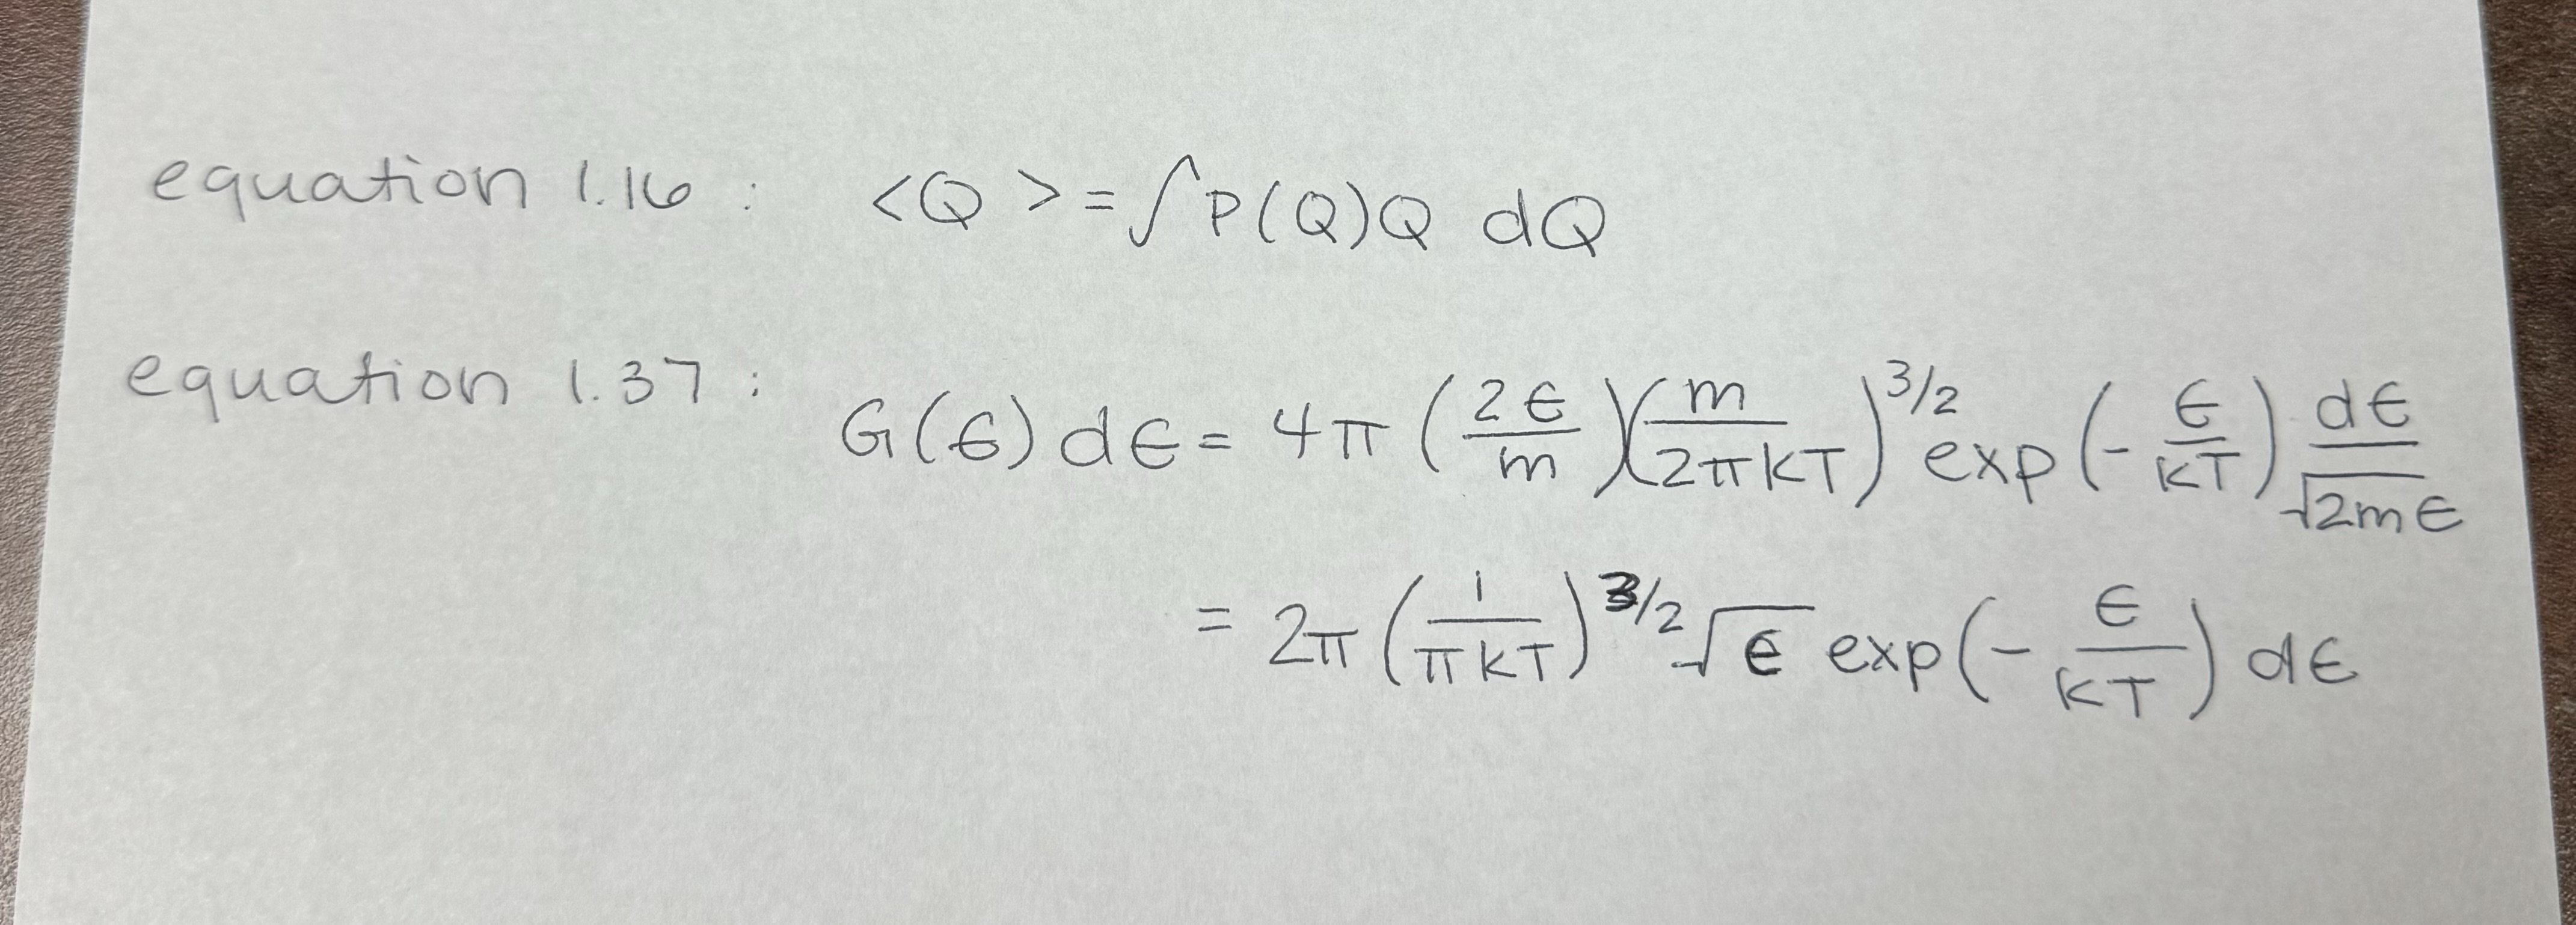 equation 1.16 : <Q> = ∫P(Q)Q dQ
equation 1.37 : G(ϵ) dϵ = 4π (2ϵ/m)(m/2πKT)^3/2 exp(-ϵ/KT) dϵ/√2mϵ
= 2π (1/πKT)^3/2 √ϵ exp(-ϵ/KT) dϵ